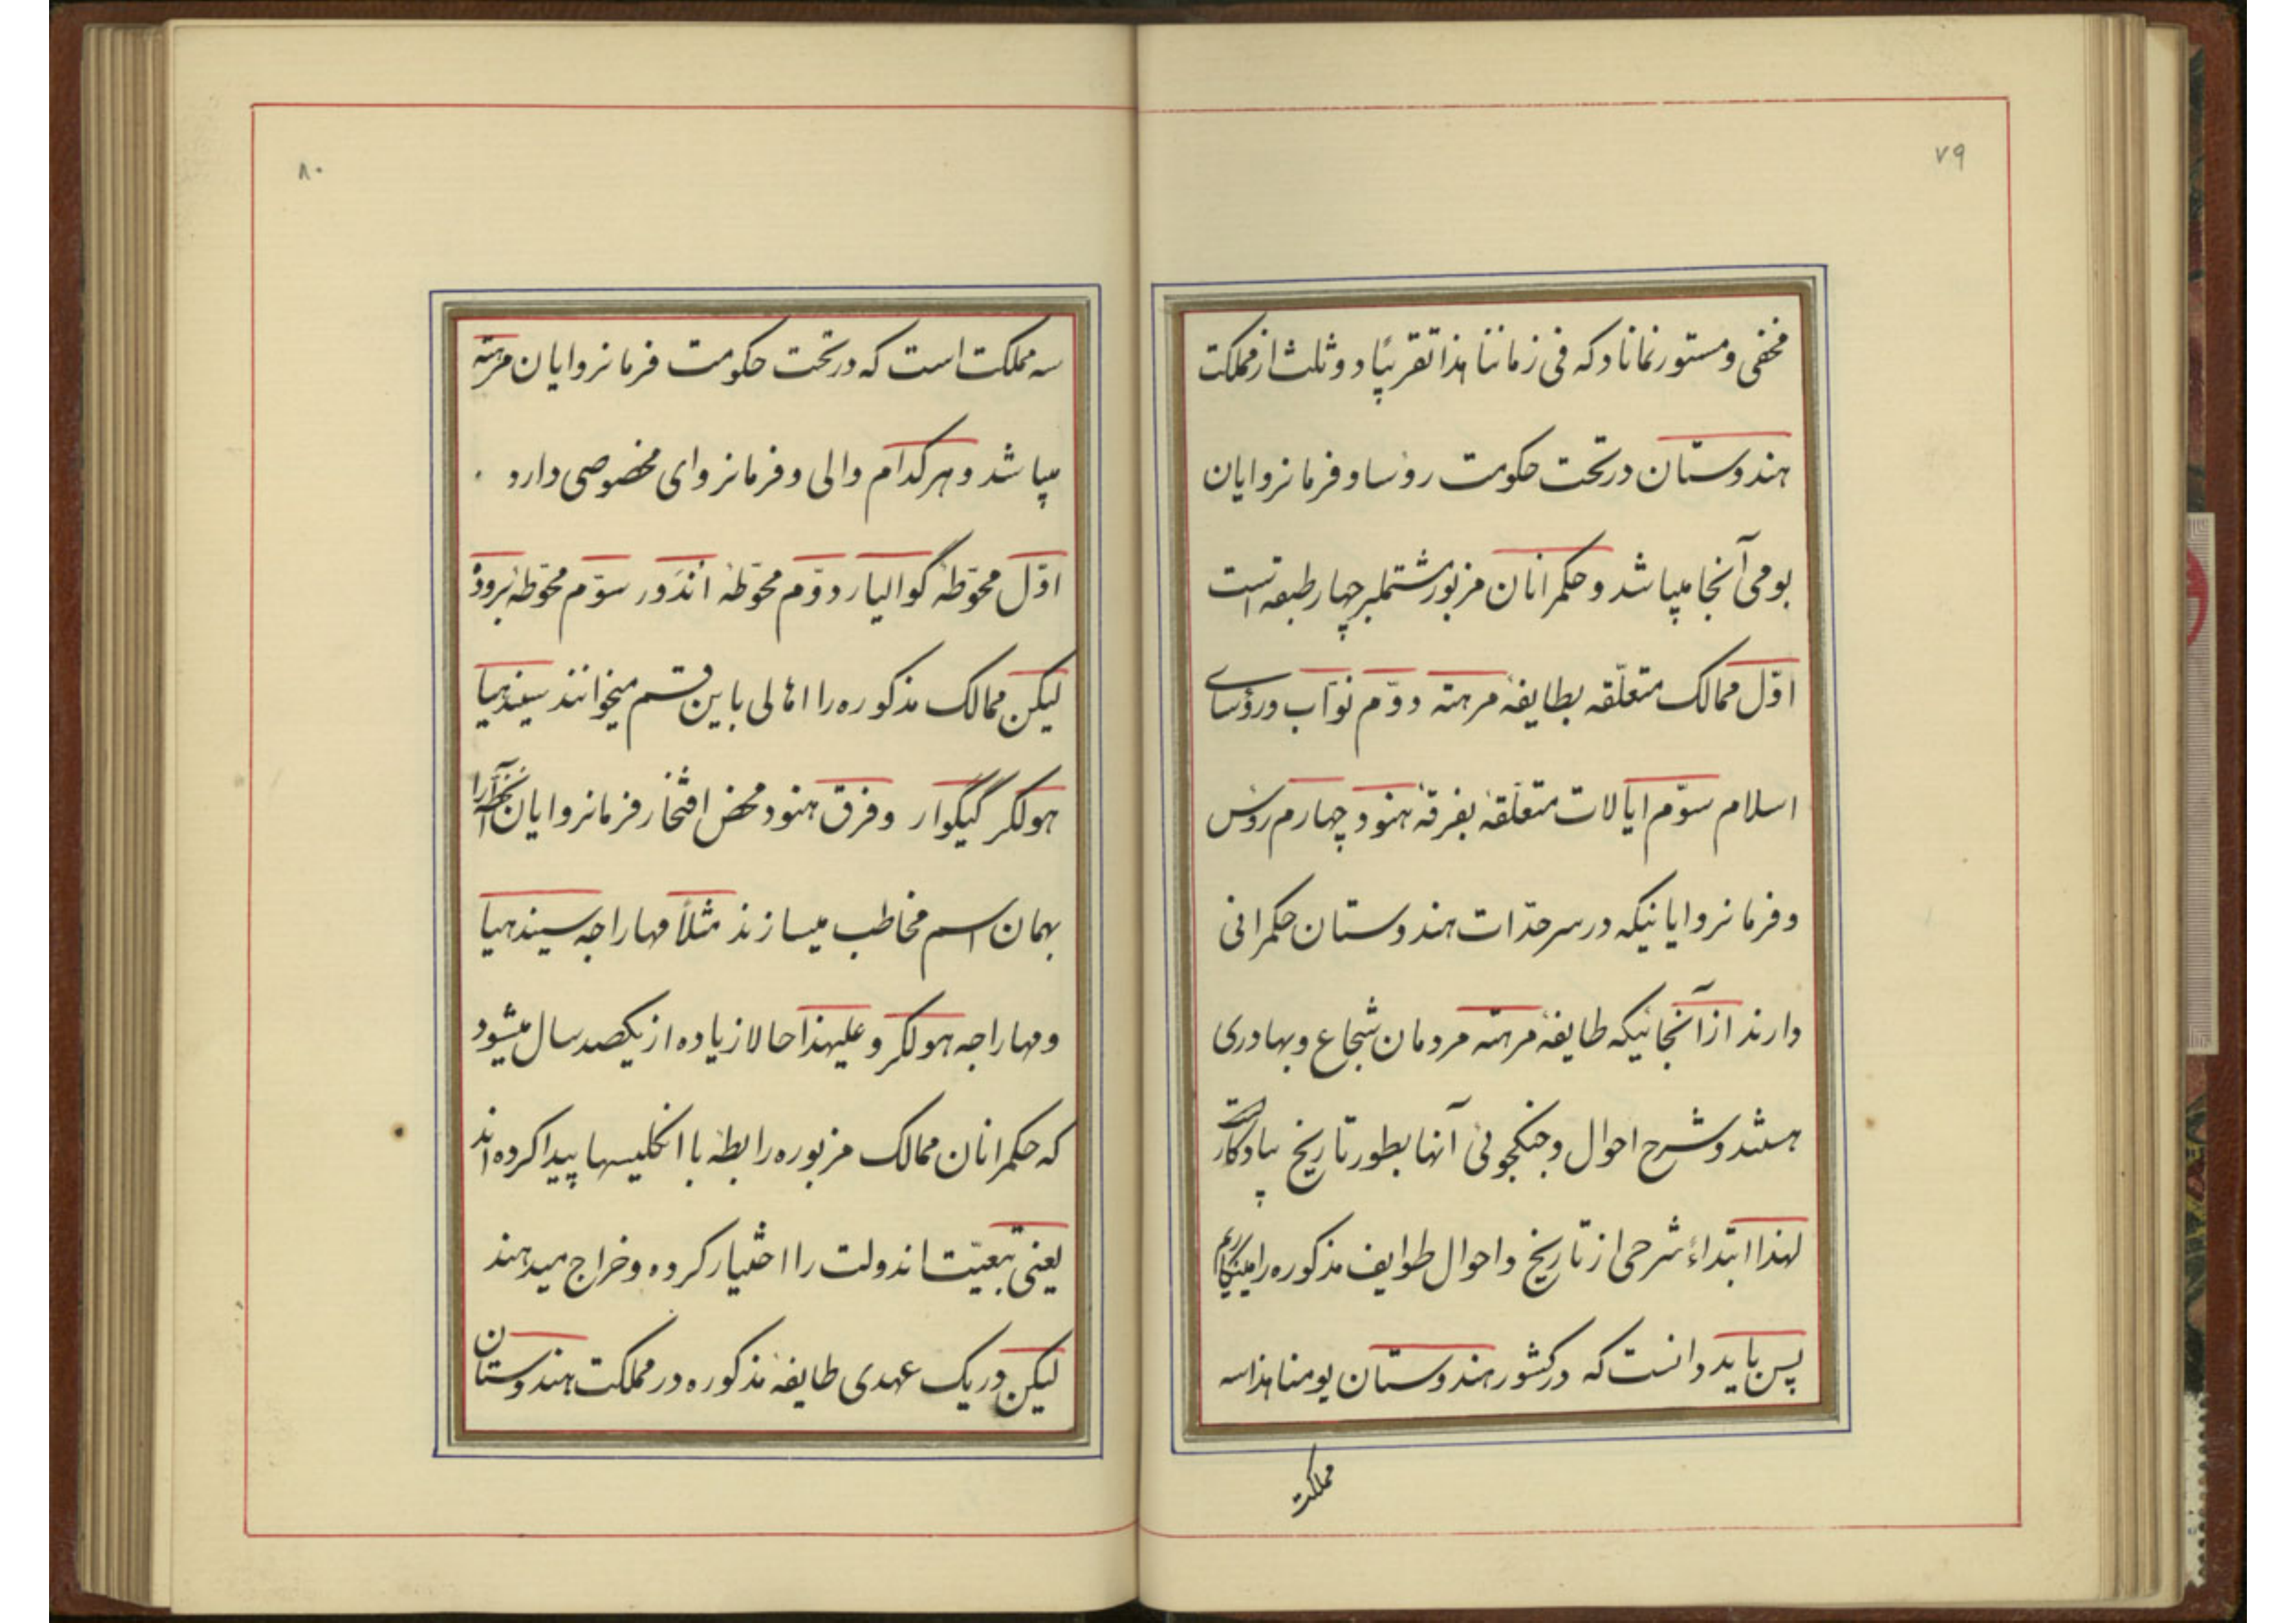 ۷۹
مخفی و مستور نماناد که فی زماننا هذا تقریبًا دو ثلث از مملکت
هندوستان در تحت حکومت روٴسا و فرمانروایان
بومی آنجا میباشد و حکمرانان مزبور مشتملبر چهار طبقه است
اوّل ممالک متعلّقه بطایفهٔ مرهته دوّم نوّاب و رؤسای
اسلام سوّم ایالات متعلّقهٔ بفرقهٔ هنود چهارم روٴس
و فرمانروایانیکه در سرحدّات هندوستان حکمرانی
دارند از آنجائیکه طایفهٔ مرهته مردمان شجاع و بهادری
هستند و شرح احوال و جنکجوئی آنها بطور تاریخ بیادکار است
لهذا ابتداءً شرحی از تاریخ و احوال طوایف مذکوره را مینکاریم
پس باید دانست که در کشور هندوستان یومنا هذا سه
مملکت
۸۰
سه مملکت است که در تحت حکومت فرمانروایان مرهته
میباشد و هر کدام والی و فرمانروای مخصوصی دارد .
اوّل محوّطهٔ کوالیار دوّم محوّطهٔ اندَور سوّم محوّطهٔ برودهٔ
لیکن ممالک مذکوره را اهالی باین قسم میخوانند سیندهیا
هولکر کیکوار و فرق هنود محض افتخار فرمانروایان آنجا را
بهمان اسم مخاطب میسازند مثلاً مهاراجه سیندهیا
و مهاراجه هولکر و علیهذا حالا زیاده از یکصد سال میشود
که حکمرانان ممالک مزبوره رابطهٔ با انکلیسها پیدا کرده اند
یعنی تبعیّت اندولت را اختیار کرده و خراج میدهند
لیکن در یک عهدی طایفهٔ مذکوره در مملکت هندوستان